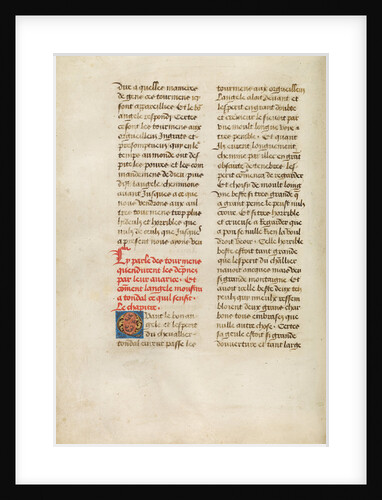 Dire a quelles manieres
de gens ces tourmens icy
sont appareillies Et le bon
angele respondy Certes
ce sont les tourmens aux
orguieulleux Ingrats et
presompcieux qui en le
temps au monde ont des
pite les poures et les com
mandemens de dieu puis
dist langele cheminons
auant Jusques a ce que
nous viendrons aux aul
tres tourmens trop plus
hideulx et horribles que
nulz de ceulx que Jusques
a present nous ayons veu
Cy parle des tourmens
quendurent les dempnes
par leur auarice Et
comment langele monstra
a tondal ce quil sensit
Le chapitre
Quant le bon an
gele et lesperit
du cheuallier
tondal eurent passe les
tourmens aux orguieulleux
Langele aloit deuant et
lesperit en grant doubte
et cremeur le sieuoit par
vne moult longue voye
tres penible Et quant
Ilz eurent longuement
chemine par illec en grant
obscurte de tenebres le
sperit commenca de regarder
Et choisy de moult long
vne beste si tres grande que
a grant peine le peust nulz
croire Et si tres horrible
et cruese a regarder que
a pou se nulle rien la voul
droit veoir Celle horrible
beste estoit tant grande
que lesperit du cheuallier
nauoit ancques mais veu
si grande montaigne Et
auoit celle beste deux yeulx
qui mieulx ressem
bloient deux grans char
bons tous embrasez que
nulle autre chose Certes
sa geule estoit si grande
douuerture et tant large